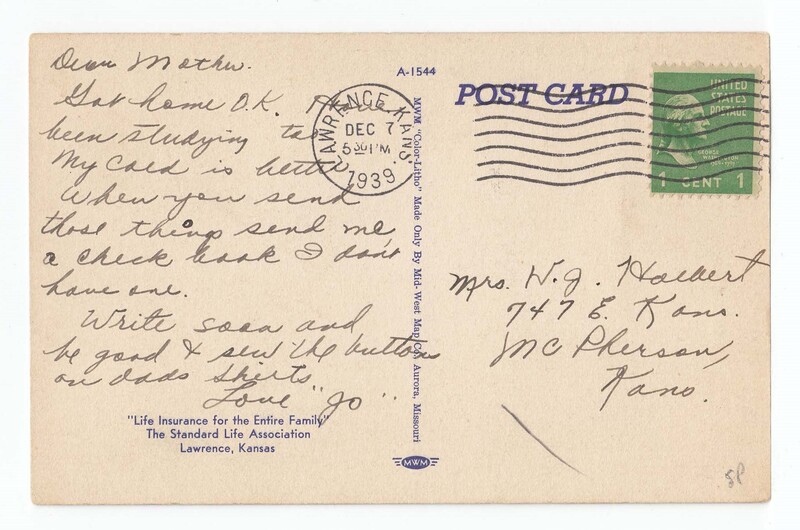 Dear Mother.
Got home O.K. I have
been studying to
My cold is better
When you send
those things send me
a check book I don't
have one.
Write soon and
be good & sew the buttons
on dads shirts
Love "Jo"
"Life Insurance for the Entire Family"
The Standard Life Association
Lawrence, Kansas
A-1544
MWM "Color-Litho" Made Only By Mid-West Map Co., Aurora, Missouri
MWM
POST CARD
LAWRENCE, KANS
DEC 7
5 30 PM
1939
UNITED
STATES
POSTAGE
GEORGE
WASHINGTON
1 CENT 1
Mrs. W. J.
747 E. Kans.
McPherson,
Kans.